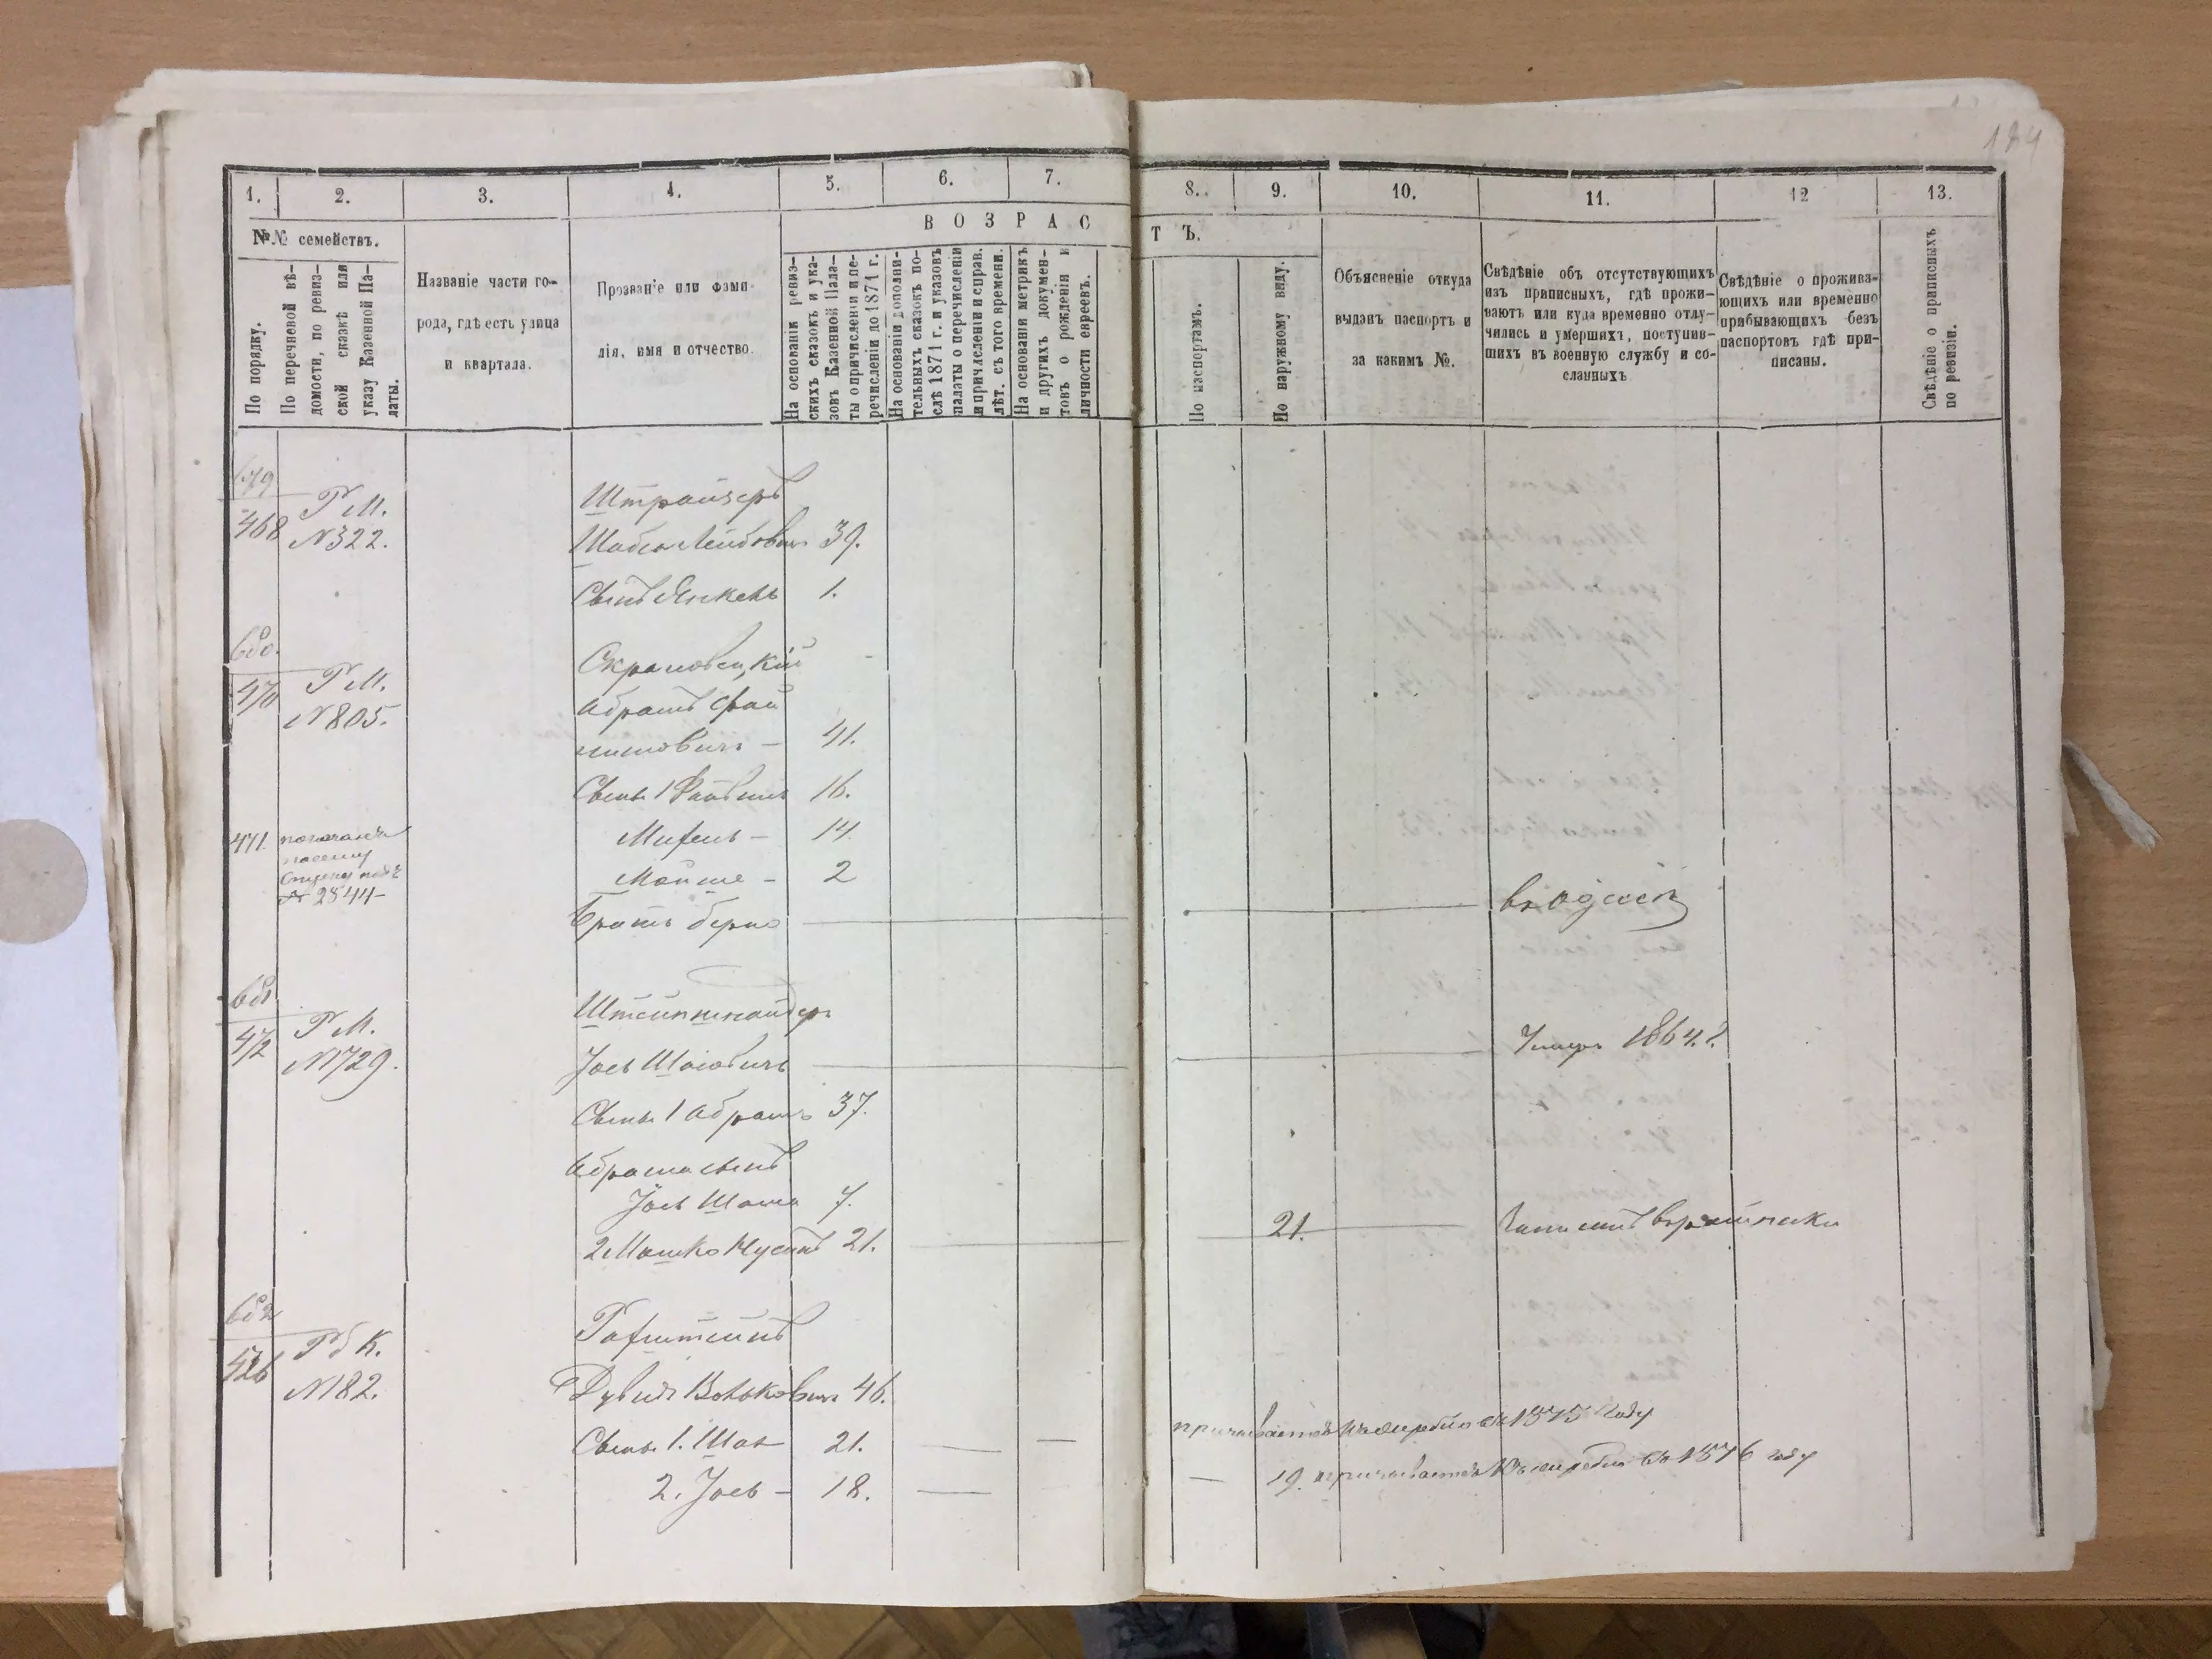 184
1.
2.
3.
4.
5.
6.
7.
8.
9.
10.
11.
12
13.
№№ семействъ.
В О З Р А С
Т Ъ.
По порядку.
По перечневой вѣ-
домости, по ревиз-
ской сказкѣ или
указу Казенной Па-
латы.
Названіе части го-
рода, гдѣ есть улица
и квартала.
Прозваніе или фами-
лія, имя и отчество.
На основаніи ревиз-
скихъ сказокъ и ука-
зовъ Казенной Пала-
ты о причисленіи и пе-
речисленіи до 1871 г.
На основаніи дополни-
тельныхъ сказокъ по-
слѣ 1871 г. и указовъ
палаты о перечисленіи
и причисленіи и справ.
лѣт. съ того времени.
На основаніи метрикъ
и другихъ докумен-
товъ о рожденіи и
личности евреевъ.
По паспортамъ.
По наружному виду.
Объясненіе откуда
выданъ паспортъ и
за какимъ №.
Свѣдѣніе объ отсутствующихъ
изъ приписныхъ, гдѣ прожи-
ваютъ или куда временно отлу-
чились и умершихъ, поступив-
шихъ въ военную службу и со-
сланныхъ
Свѣдѣніе о прожива-
ющихъ или временно
прибывающихъ безъ
паспортовъ гдѣ при-
писаны.
Свѣдѣніе о приписныхъ
по ревизіи.
679
468
Р М.
N 322.
Штрайхеръ
Шабса Лейбовичъ 39.
Сынъ Янкель 1.
680.
470
Р М.
N 805.
Абрамъ Фай
вишовичъ – 41.
Сынъ 1 Файвишъ 16.
14.
471.
N 2544
Мойше – 2
Братъ Берко
въ Одессѣ
681
472
Р М.
N 1729.
Іось Шаіовичъ
Умеръ 1864 г.
Сынъ 1 Абрамъ 37.
Абрама сынъ
Іось Шама 7.
2 Мошко Нусинъ 21.
21.
682
426
Р б К.
N 182.
Дувидъ Вольковичъ 46.
Сынъ 1. Шая 21.
призывается къ жребію въ 1875 году
2. Іось – 18.
19. призывается къ жребію въ 1876 году